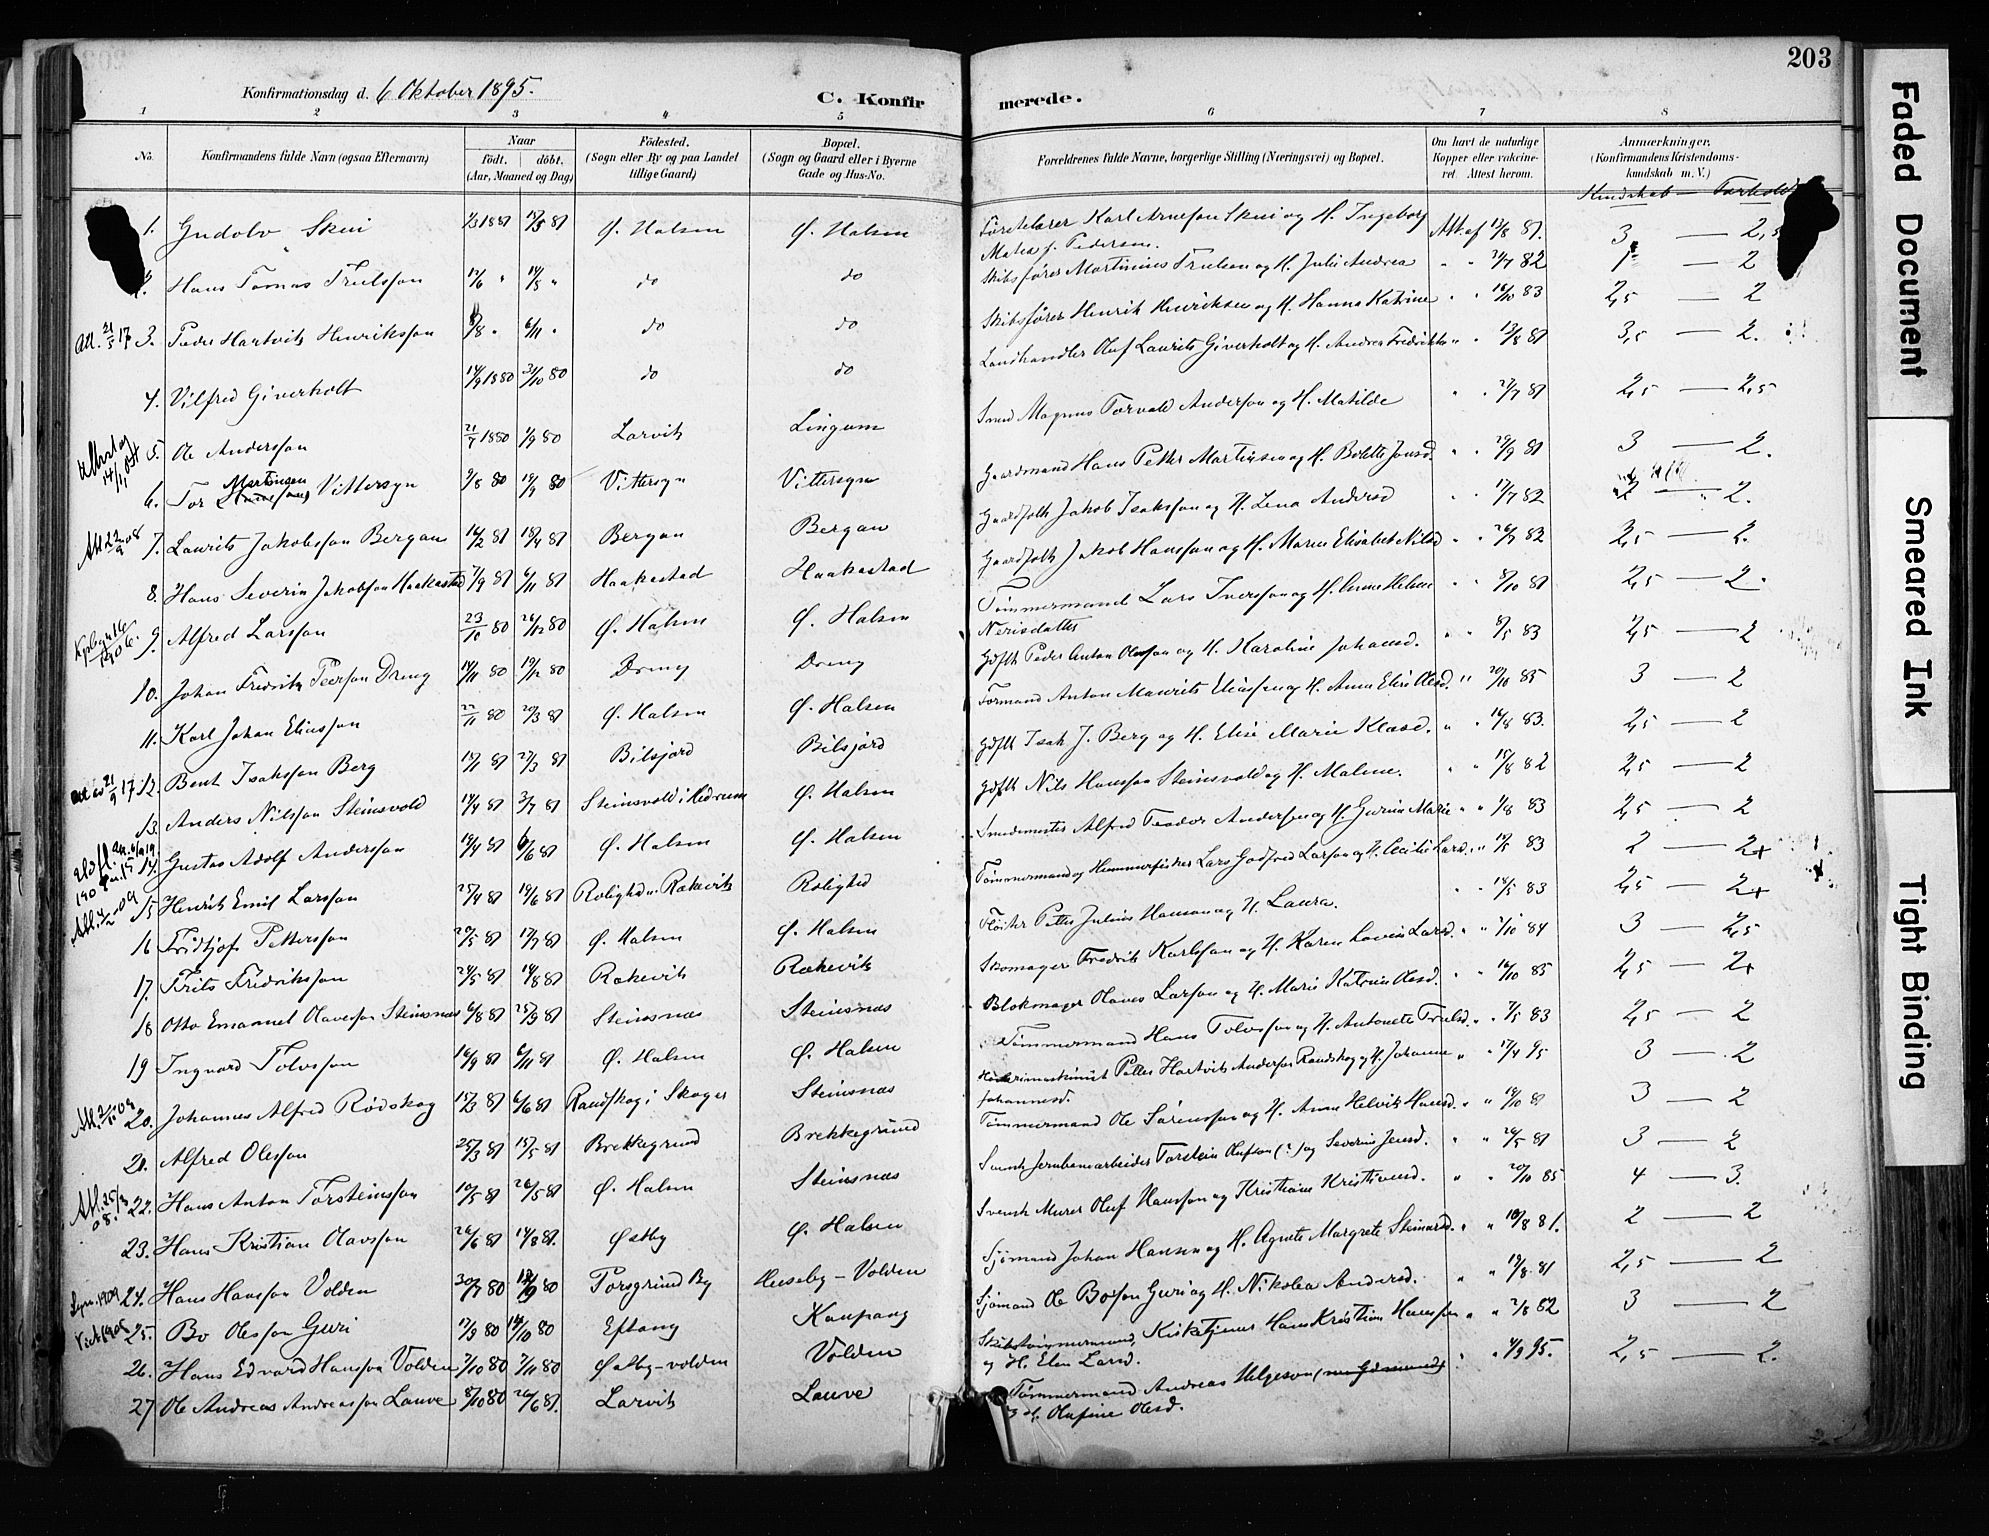 203
Konfirmationsdag d. 6 Oktober 1895.
C. Konfir merede.
1 2 3 4 5 6 7 8
No. Konfirmandens fulde Navn (ogsaa Efternavn) Naar født. døbt. (Aar, Maaned og Dag) Fødested. (Sogn eller By og paa Landet tillige Gaard) Bopæl. (Sogn og Gaard eller i Byerne Gade og Hus-No. Forældrenes fulde Navne, borgerlige Stilling (Næringsvei) og Bopæl. Om havt de naturlige Kopper eller vakcineret. Attest herom. Anmærkninger. (Konfirmandens Kristendomskundskab m. V.)
Kundskab — Forhold
1. Gudolv Skui Ø. Halsen Ø. Halsen Karl Arnesson Skui og H. Ingeborg Att. af 13/8 81. 3 — 2,5
Matea f. Pedersen.
2. Hans Tomas Trulsson do do Skibsfører Martinius Trulsen og H. Julie Andrea 21/7 82 — 2
3. Peder Hartvik Henriksson do do Skibsfører Henrik Henriksen og H. Hanna Katrine 16/10 83 2,5 — 2
4. Vilfred Giverholt 14/9 1880 31/10 80 do do Landhandler Oluf Laurits Giverholt og H. Andrea Fredrikke 13/8 81 3,5 — 2.
5. Ole Andersson 21/7 1880 1/9 80 Larvik Lingum Smed Magnus Torvald Anderson og H. Matilde 27/7 81 2,5 — 2,5
6. Tor Martinsen Vittersyn 2/8 80 19/9 80 Vittersyn Vittersyn Gaardmand Hans Petter Martinsen og H. Bolette Jonsd. 29/9 81 3 — 2.
7. Laurits Jakobsson Bergan 16/2 81 18/4 81 Bergan Bergan Gaardfolk Jakob Isaksson og H. Lena Andersd 17/7 82 2 — 2.
8. Hans Severin Jakobsson Haakestad 7/9 81 6/11 81 Haakestad Haakestad Gaardfolk Jakob Hansson og H. Maren Elisabet Nilsd 26/7 82 2,5 — 2.
9. Alfred Larsson 23/10 80 26/12 80 Ø. Halsen Ø. Halsen Tømmermand Lars Iversson og H. Anne Helene 8/10 81 2,5 — 2.
10. Johan Fredrik Peerson Dreng 14/11 80 19/12 80 Dreng Dreng Gdflk Peder Anton Olesson og H. Karoline Johansd. 8/5 83 2,5 — 2
11. Karl Johan Eliasson 22/11 80 27/3 81 Ø. Halsen Ø. Halsen Formand Anton Maurits Eliassen og H. Anne Elise Olesd. 20/10 85 3 — 2
12. Bent Isaksson Berg 27/3 81 Bilsjørd Bilsjørd Gdflk Isak J. Berg og H. Elise Marie Klasd. 16/8 83. 2,5 — 2
13. Anders Nilsson Steinsvold 3/7 81 Steinsvold i Hedrum Ø. Halsen Gdflk Nils Hansson Steinsvold og H. Malene. 15/8 82 2,5 — 2
14. Gustav Adolf Andersson 19/4 81 6/6 81 Ø. Halsen Ø. Halsen Smedemester Alfred Teodor Andersen og H. Gurine Marie 83 2,5 — 2
15 Henrik Emil Larsson 25/4 81 19/6 81 Rolighed v. Rakevik Rolighed Tømmermand og Hummerfisker Lars Godfred Larson og H. Cecilie Larsd. 83 2 — 2+
16 Fridtjof Pettersson 29/5 81 17/7 81 Ø. Halsen Ø. Halsen Petter Julius Hanson og H. Laura. 14/5 83 2,5 — 2+
17. Frits Fredriksson 24/5 81 14/8 81 Rakevik Rakevik Skomager Fredrik Karlsson og H. Karen Lovise Larsd. 7/10 84 3 — 2,5
18 Otto Emanuel Olavesson Steinsnæs 6/8 81 25/9 81 Steinsnæs Steinsnæs Blokmager Olaves Larson og H. Marie Katrine Olesd. 16/10 85 2,5 — 2+
19 Ingvard Tolvsson 16/9 81 6/11 81 Ø. Halsen Ø. Halsen Tømmermand Hans Tolvsson og H. Antonette Trulsd. 7/5 83 2,5 — 2
20. Johannes Alfred Rødskog 15/3 81 6/6 81 Raudskog i Skoger Steinsnæs Petter Hartvik Anderson Raudskog og H. Johanne 17/4 95 3 — 2
Johannesd.
21. Alfred Olesson 25/3 81 15/5 81 Brekkegrund Brekkegrund Tømmermand Ole Sørensson og H. Anne Helvik Hansd. 19/10 81 3 — 2
22. Hans Anton Torsteinsson 10/5 81 26/5 81 Ø. Halsen Steinsnæs Svensk Jernbanearbeider Torstein Olufson (?) og Severine Jensd. 26/5 81 3 — 2
23. Hans Kristian Olavsson 26/6 81 14/8 81. Østby Ø. Halsen Svensk Murer Oluf Hansson og Kristiane Kristiansd. 20/10 85 4 — 3.
24. Hans Hansson Volden 30/7 80 Porsgrund By Huseby - Volden Sjømand Johan Hansen og H. Agnete Margrete Steinarsd. 81. 2 — 2
25. Bo Olesson Guri 17/9 80 Eftang Kaupang Sjømand Ole Boson Guri og H. Nikolea Andersd. 19/8 81 2,5 — 2
26. Hans Edvard Hansson Volden 7/10 80 7/11 80 Østby-volden Volden Skibstømmermand, Kirketjener Hans Kristian Hansson 2/8 82 3 — 2
og H. Elen Larsd.
27 Ole Andreas Andreasson Lauve 8/10 80 26/6 81. Larvik Lauve Tømmermand Andreas Helgeson 4/9 95. 2,5 — 2.
og H. Olufine Olesd.
Faded Document
Smeared Ink
Tight Binding